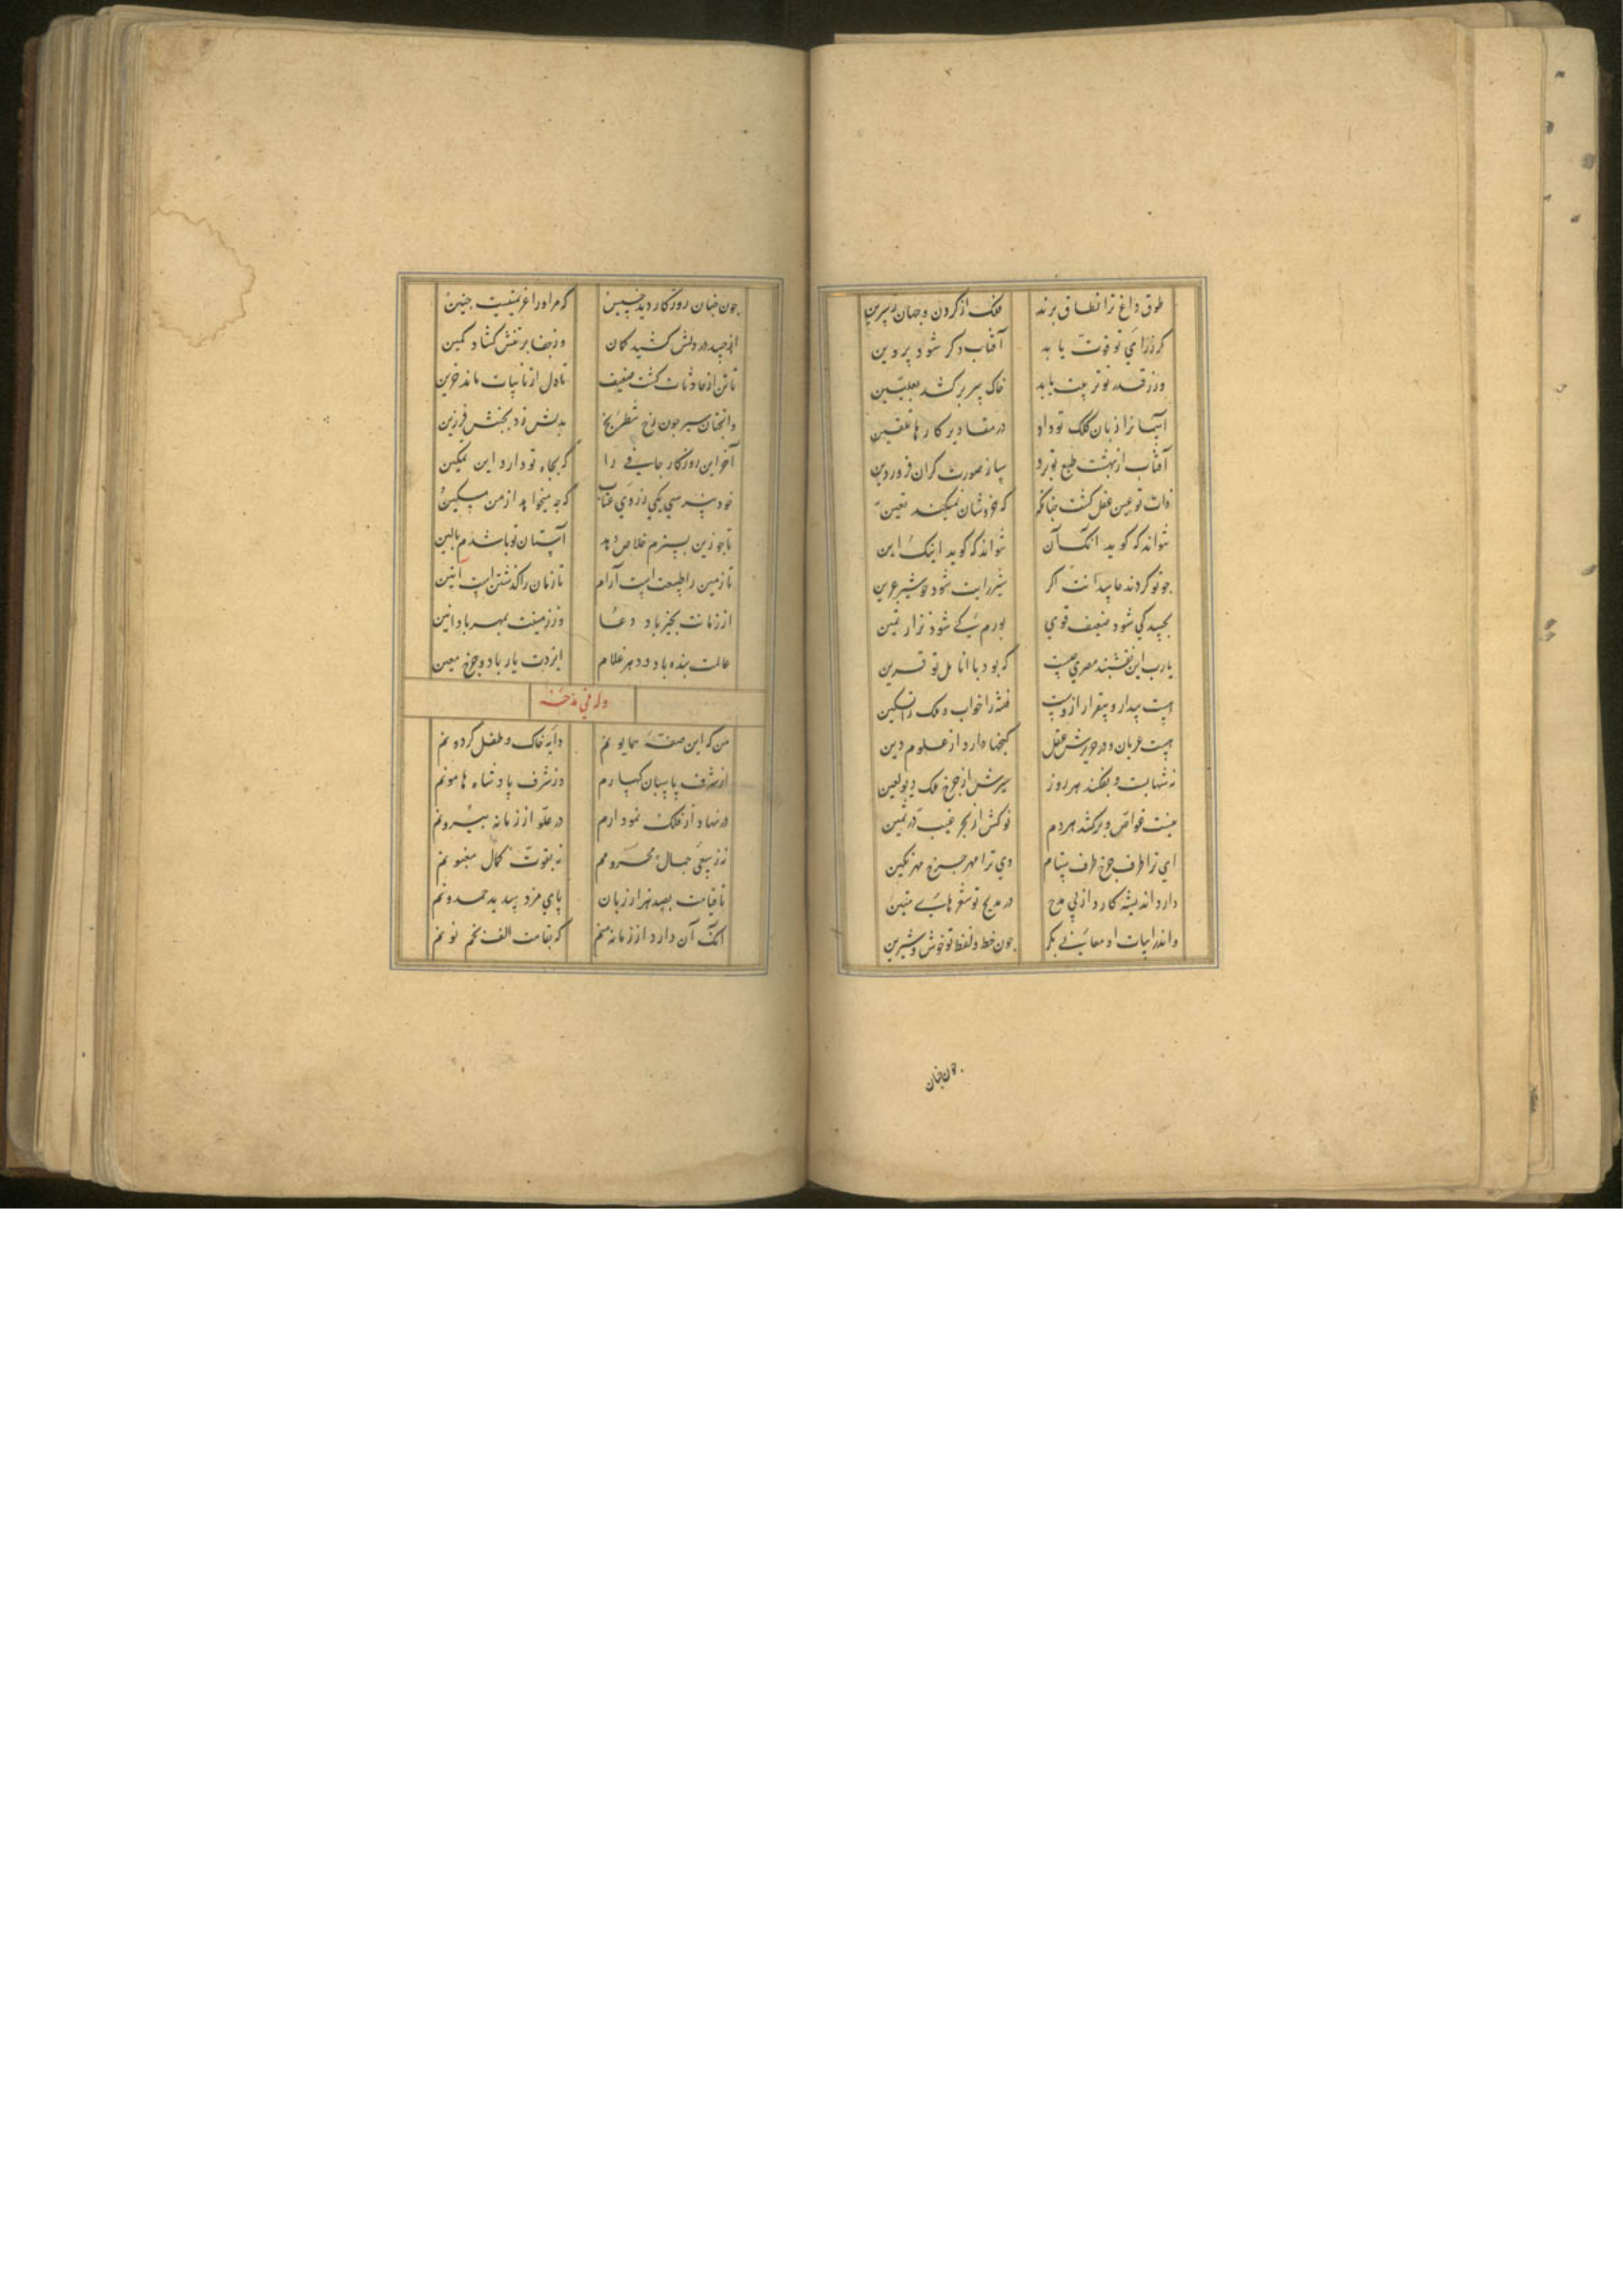 طوق داغ ترا نطاق برند فلک از کردن و جهان ز سرین
کر ز رای تو قوت یابد آفتاب دکر شود پروین
ور ز قدر تو تربیت یابد خاک سر برکشد بعلیین
آسمانرا زبان کلک تو داد در مقادیر کارها تلقین
آفتاب از بهشت طبع تو برد ساز صورت کران فروردین
ذات تو عین عقل کشت جنانک که خردشان نمیکند تعیین
نتواند که کوید آنک آن نتواند که کوید اینک این
جو تو کردند حاسدانت اکر شیر رایت شود جو شیر عرین
بحسد کی شود ضعیف قوی بورم کی شود نزار سمین
یارب این نقشبند مصری جیست که بود با انامل تو قرین
هست بیدار و بیقرار ازوست فتنه را خواب و ملک را تسکین
هست عریان و در خزینش عقل کنجها دارد از علوم دین
نه شهابست و بفکند هر روز سرش از جرخ ملک دیو لعین
نیست غواص و برکشد هر دم نوکش از بحر غیب در ثمین
ای ترا طرف جرخ طرف ستام وی ترا مهر جرخ مهر نکین
دارد اندیشه کارد از پی مدح در مدیح تو شعرهای متین
واندر ابیات او معانی بکر جون خط و لفظ تو خوش و شیرین
جون جنان
جون جنان روزکار دید جنین که مر او را عزیمتیست جنین
از حسد در دلش کشید کمان وز جفا بر تنش کشاد کمین
تا تن از حادثات کشت ضعیف تا دل از نایبات ماند حزین
وانجنان سیر جون رخ شطرنج بدلش زد بجنبش فرزین
آخر این روزکار جافی را که بجاه تو دارد این تمکین
خود نپرسی یکی ز روی عتاب که جه میخواهد از من مسکین
تا جو زین بسترم خلاص دهد آستان تو باشدم بالین
تا زمین را طبیعت است آرام تا زمان را کذشتن است آیین
از زمانت بخیر باد دعا وز زمینت بمهر باد آمین
عالمت بنده باد و دهر غلام ایزدت یار باد و جرخ معین
وله فی مدحه
من که این صفه همایونم دایه خاک و طفل کردونم
از شرف پاسبان کهسارم وز شرف پادشاه هامونم
در نهاد از فلک نمودارم در علو از زمانه بیرونم
نه ز سعی جمال محرومم نه بقوت کمال مغبونم
تا قیامت بصد هزار زبان پای مزد سدید حمدونم
آنک آن دارد از زمانه منم که بقامت الف بخم نونم